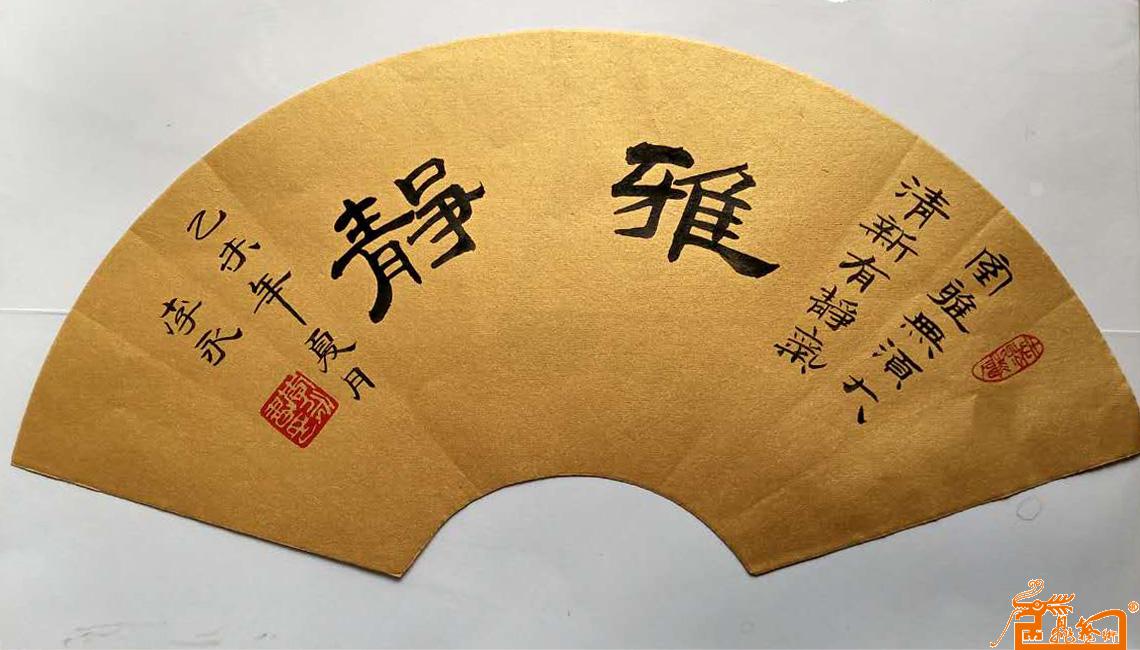 室雅無須大
清新有靜氣
雅靜
乙未年夏月
李永